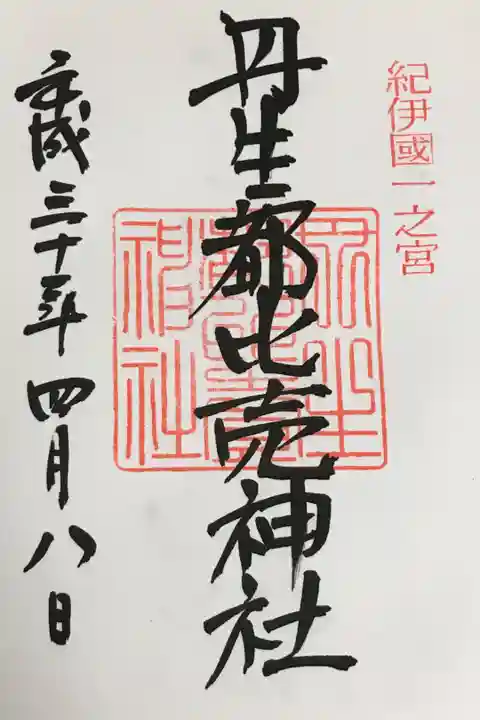 紀伊國一之宮
丹生都比売神社
丹生
都比売
神社
平成三十年四月八日